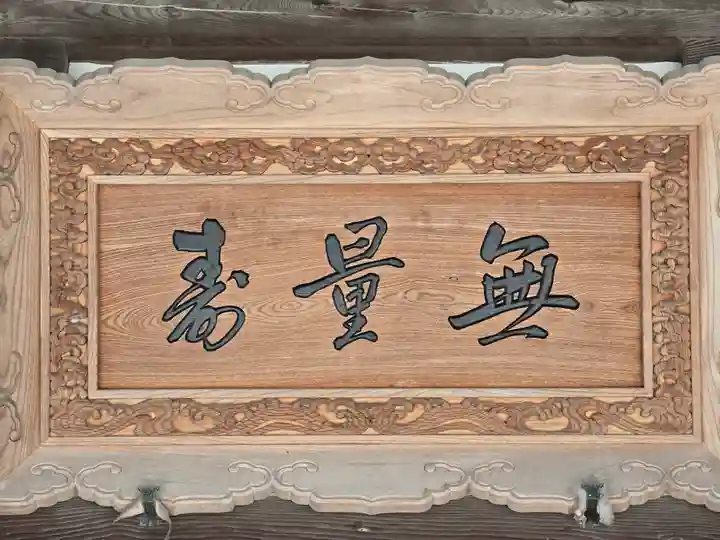 無量壽